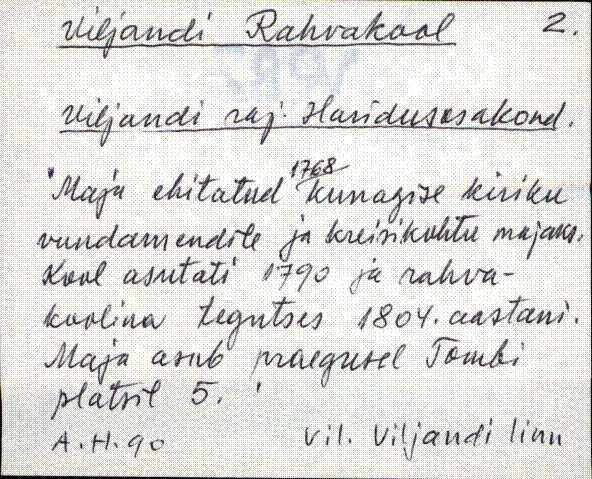 Viljandi Rahvakool 2.
Viljandi raj. Haridusosakond.
1768
"Maja ehitatud kunagise kiriku
vundamendile ja kreisikohtu majaks.
Kool asutati 1790 ja rahva-
koolina tegutses 1804. aastani.
Maja asub praegusel Tombi
platsil 5. "
A.H. 90 Vil. Viljandi linn